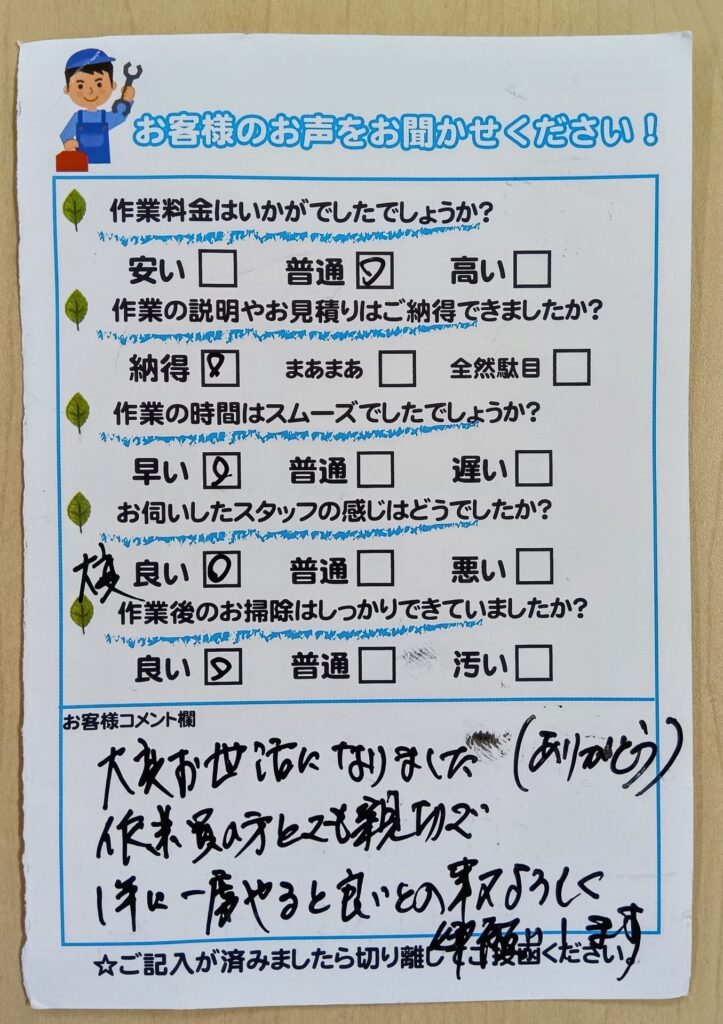 お客様のお声をお聞かせください！
作業料金はいかがでしたでしょうか？
安い 普通 高い
作業の説明やお見積りはご納得できましたか？
納得 まあまあ 全然駄目
作業の時間はスムーズでしたでしょうか？
早い 普通 遅い
お伺いしたスタッフの感じはどうでしたか？
大変 良い 普通 悪い
作業後のお掃除はしっかりできていましたか？
良い 普通 汚い
お客様コメント欄
大変お世話になりました（ありがとう）
作業員の方とても親切で
1年に一度やると良いとの事又よろしく
御願いします
☆ご記入が済みましたら切り離してご投函ください。